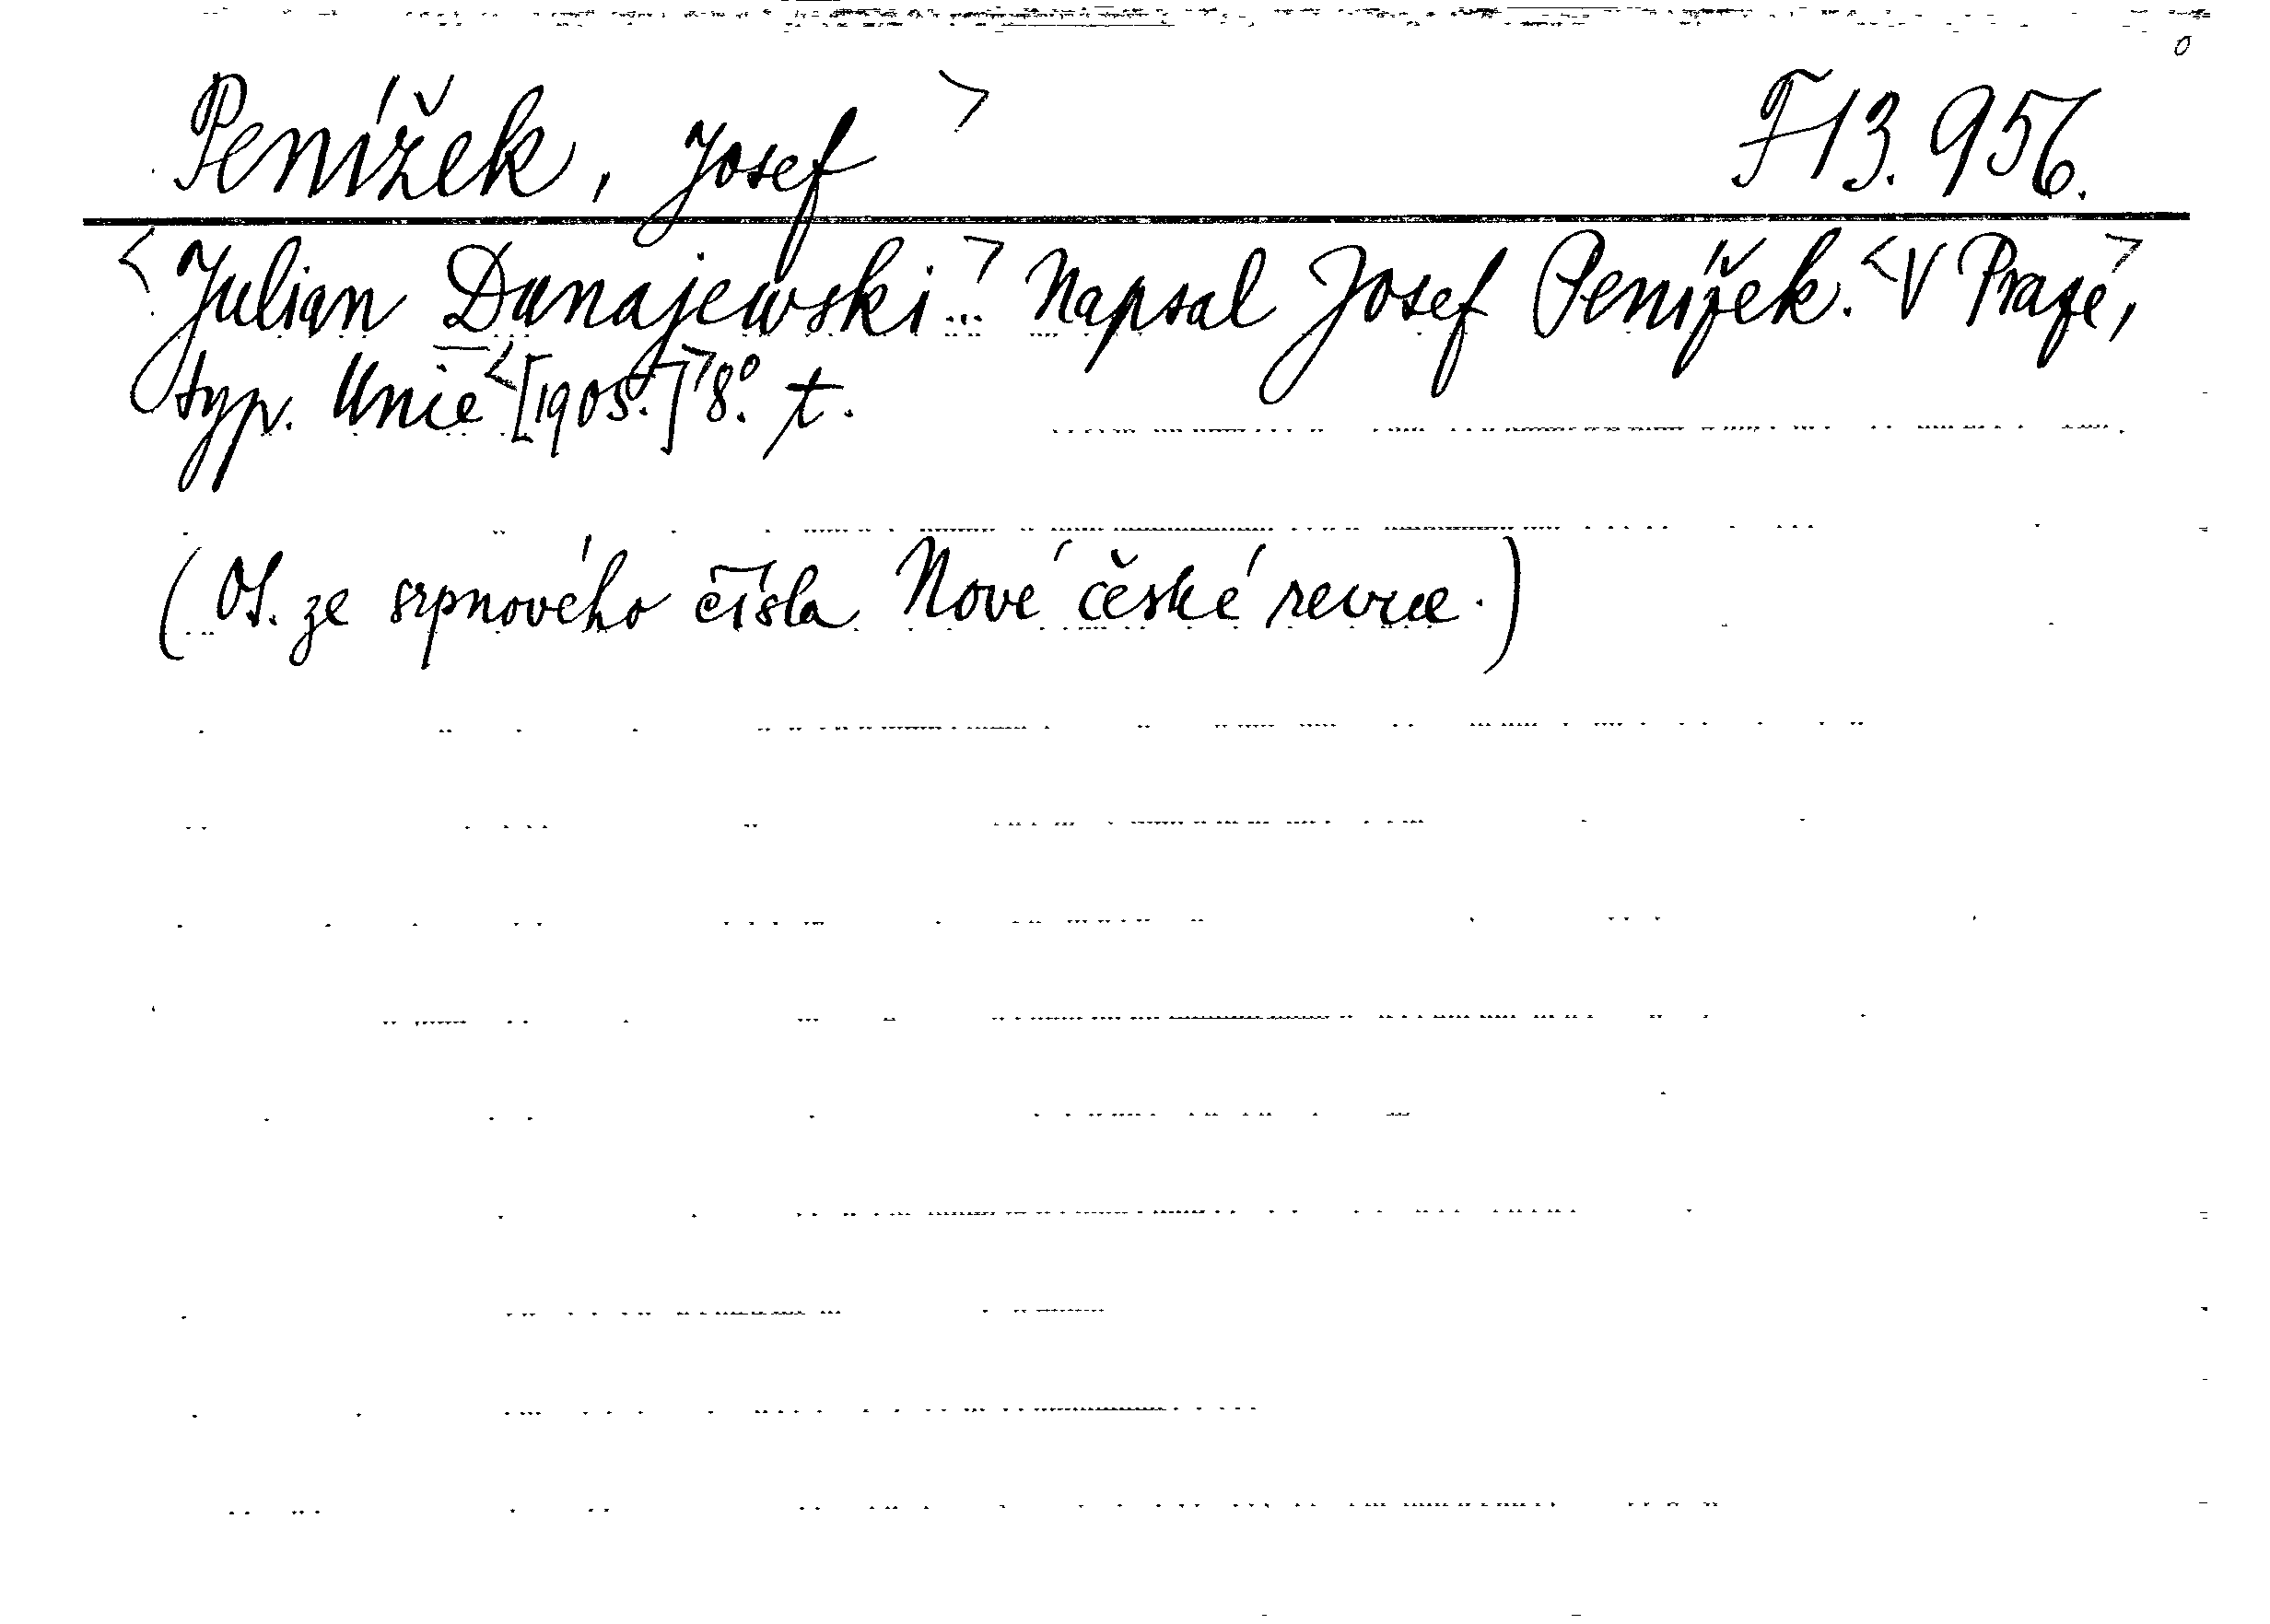 Penížek, Josef> F 13.956.
<Julian Dunajewski...> Napsal Josef Penížek. <V Praze>,
typ. Unie <[1905.]> 8°. t.
(Ot. ze srpnového čísla Nové české revue.)